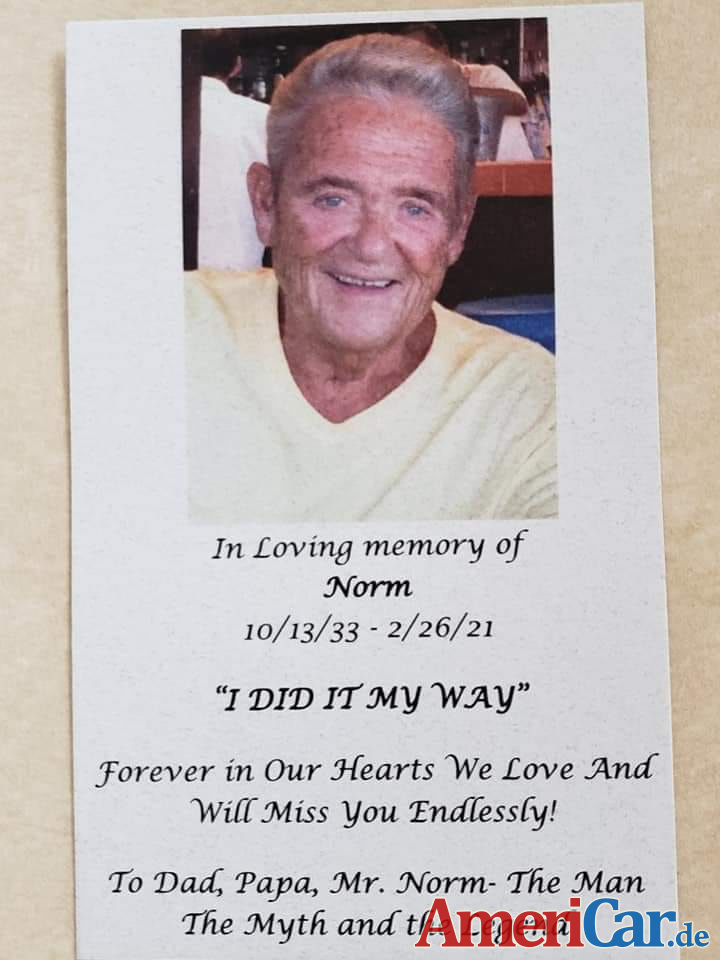 In Loving memory of
Norm
10/13/33 - 2/26/21
“I DID IT MY WAY”
Forever in Our Hearts We Love And
Will Miss You Endlessly!
To Dad, Papa, Mr. Norm- The Man
The Myth and the Legend
AmeriCar.de